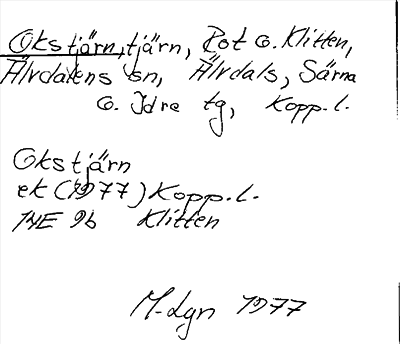 Okstjärn, tjärn, Rot o. Klitten,
Älvdalens sn, Älvdals, Särna
o. Idre tg, Kopp. l.
Okstjärn
ek (1977) Kopp. l.
14E 9b Klitten
M-Lgn 1977